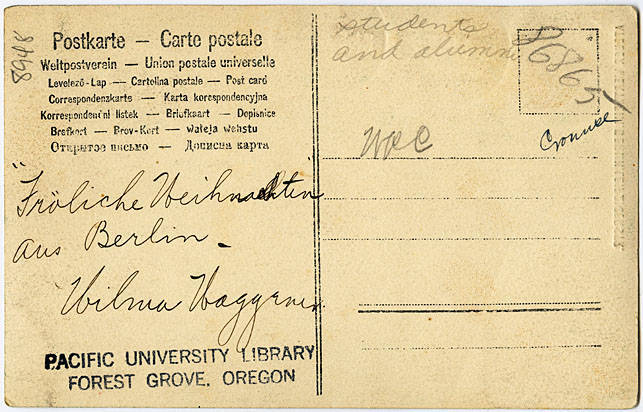 8948
Postkarte – Carte postale
Weltpostverein – Union postale universelle
Levelező-Lap – Cartolina postale – Post card
Correspondenzkarte – Karta korespondencyjna
Korrespondenční lístek – Briefkaart – Dopisnice
Brefkort – Brev-Kort – waleja wehstu
Открытое письмо – Дописна карта
"Fröliche Weihnachten"
aus Berlin –
Wilma Waggener
PACIFIC UNIVERSITY LIBRARY
FOREST GROVE, OREGON
students
and alumni
P6865
Cronise